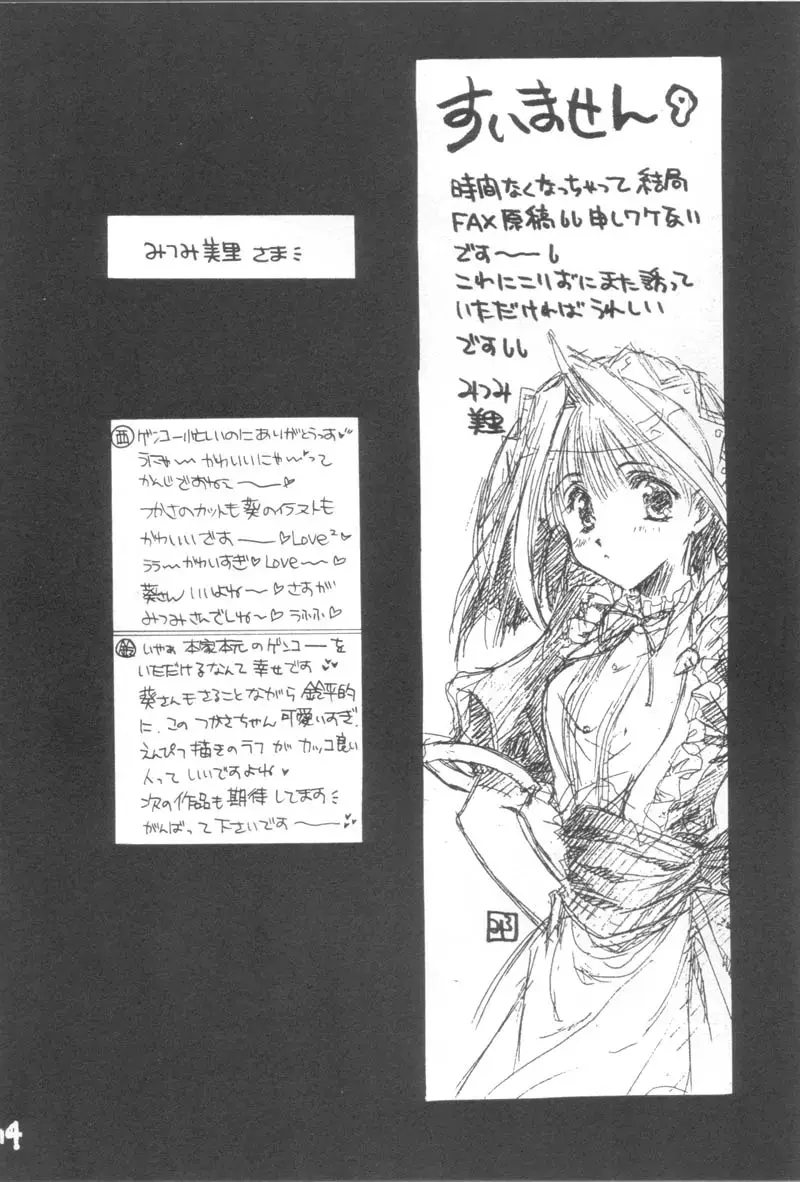 すいません
時間なくなっちゃって結局
FAX原稿 申しワケない
です〜〜
これにこりずにまた誘って
いただければうれしい
です
みつみ
美里
みつみ美里 さま
西 ゲンコー忙しいのにありがとうっす
うにゃ〜〜かわいいにゃ〜って
かんじですねェ〜〜♡
つかさのカットも葵のイラストも
かわいいです〜〜♡Love²
うう〜〜かわいすぎ♡Love〜〜♡
葵さん いいよね〜♡さすが
みつみさんでしね〜♡うふふ♡
鈴 いやぁ 本家本元のゲンコーを
いただけるなんて 幸せです
葵さんもさることながら 鈴平的
に、この つかさちゃん 可愛いすぎ。
えんぴつ描きのラフが カッコ良い
人って いいですよね
次の作品も 期待してます
がんばって下さいです〜〜
14